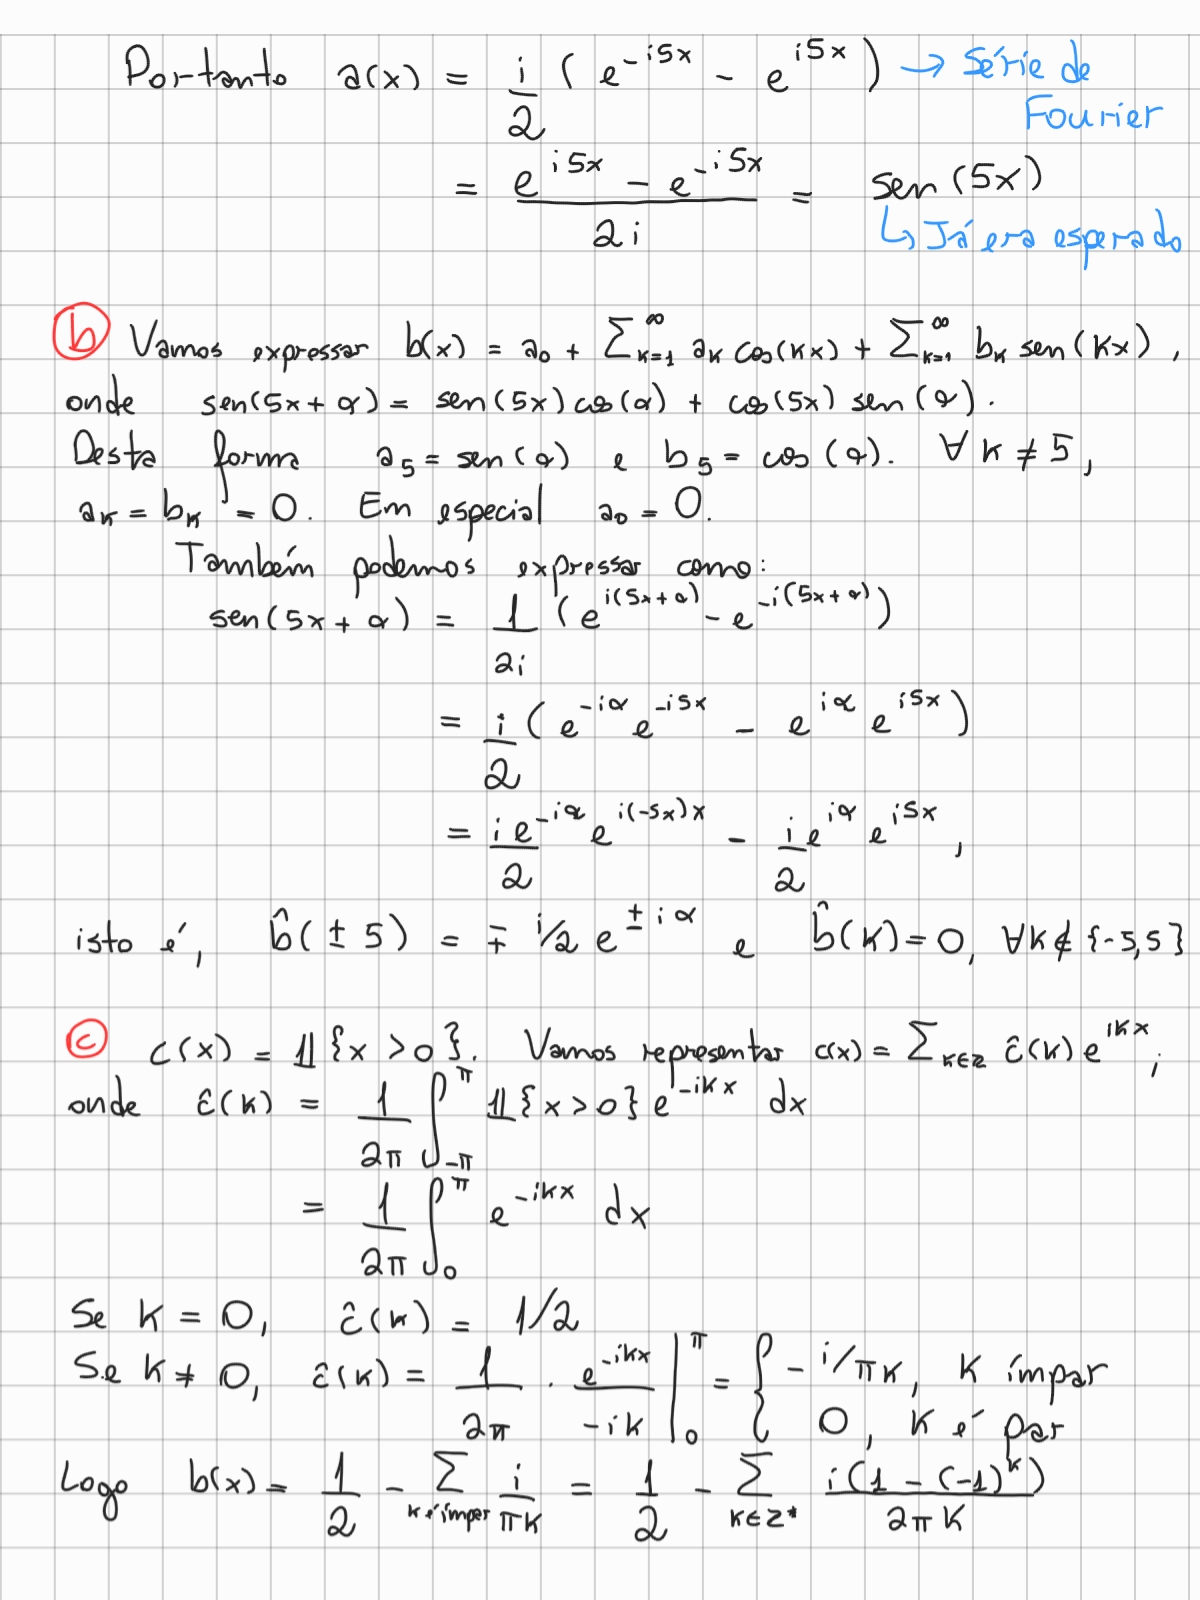 Portanto a(x) = i/2 ( e^{-i5x} - e^{i5x} ) → Série de Fourier
= (e^{i5x} - e^{-i5x})/2i = sen(5x)
↳ Já era esperado
(b) Vamos expressar b(x) = a_0 + ∑_{k=1}^∞ a_k cos(kx) + ∑_{k=1}^∞ b_k sen(kx),
onde sen(5x + α) = sen(5x) cos(α) + cos(5x) sen(α).
Desta forma a_5 = sen(α) e b_5 = cos(α). ∀ k ≠ 5,
a_k = b_k = 0. Em especial a_0 = 0.
Também podemos expressar como:
sen(5x + α) = 1/2i ( e^{i(5x+α)} - e^{-i(5x+α)} )
= i/2 ( e^{-iα} e^{-i5x} - e^{iα} e^{i5x} )
= i e^{-iα}/2 e^{i(-5x)x} - i/2 e^{iα} e^{i5x},
isto é, b̂(±5) = ∓ i/2 e^{±iα} e b̂(k) = 0, ∀k ∉ {-5,5}
(c) c(x) = 𝟙{x > 0}. Vamos representar c(x) = ∑_{k∈ℤ} ĉ(k) e^{ikx};
onde ĉ(k) = 1/2π ∫_{-π}^{π} 𝟙{x > 0} e^{-ikx} dx
= 1/2π ∫_0^π e^{-ikx} dx
Se k = 0, ĉ(k) = 1/2
Se k ≠ 0, ĉ(k) = 1/2π · e^{-ikx}/-ik |_0^π = { - i/πk, k ímpar
0, k é par
Logo b(x) = 1/2 - ∑_{k é ímpar} i/πk = 1/2 - ∑_{k∈ℤ*} i(1 - (-1)^k)/2πk